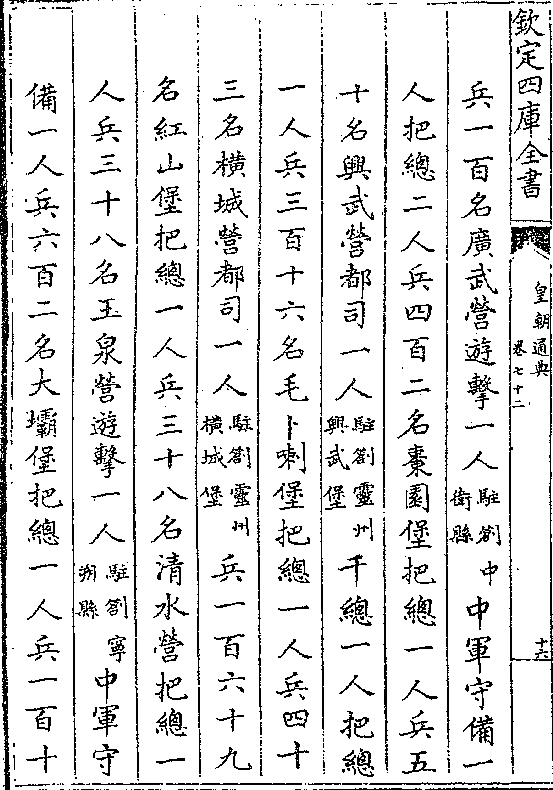 欽定四庫全書
皇朝通典
卷七十二
十六
兵一百名廣武營遊擊一人駐劄中衛縣中軍守備一
人把總二人兵四百二名棗園堡把總一人兵五
十名興武營都司一人駐劄靈州興武堡千總一人把總
一人兵三百十六名毛卜喇堡把總一人兵四十
三名橫城營都司一人駐劄靈州橫城堡兵一百六十九
名紅山堡把總一人兵三十八名清水營把總一
人兵三十八名玉泉營遊擊一人駐劄寧朔縣中軍守
備一人兵六百二名大壩堡把總一人兵一百十